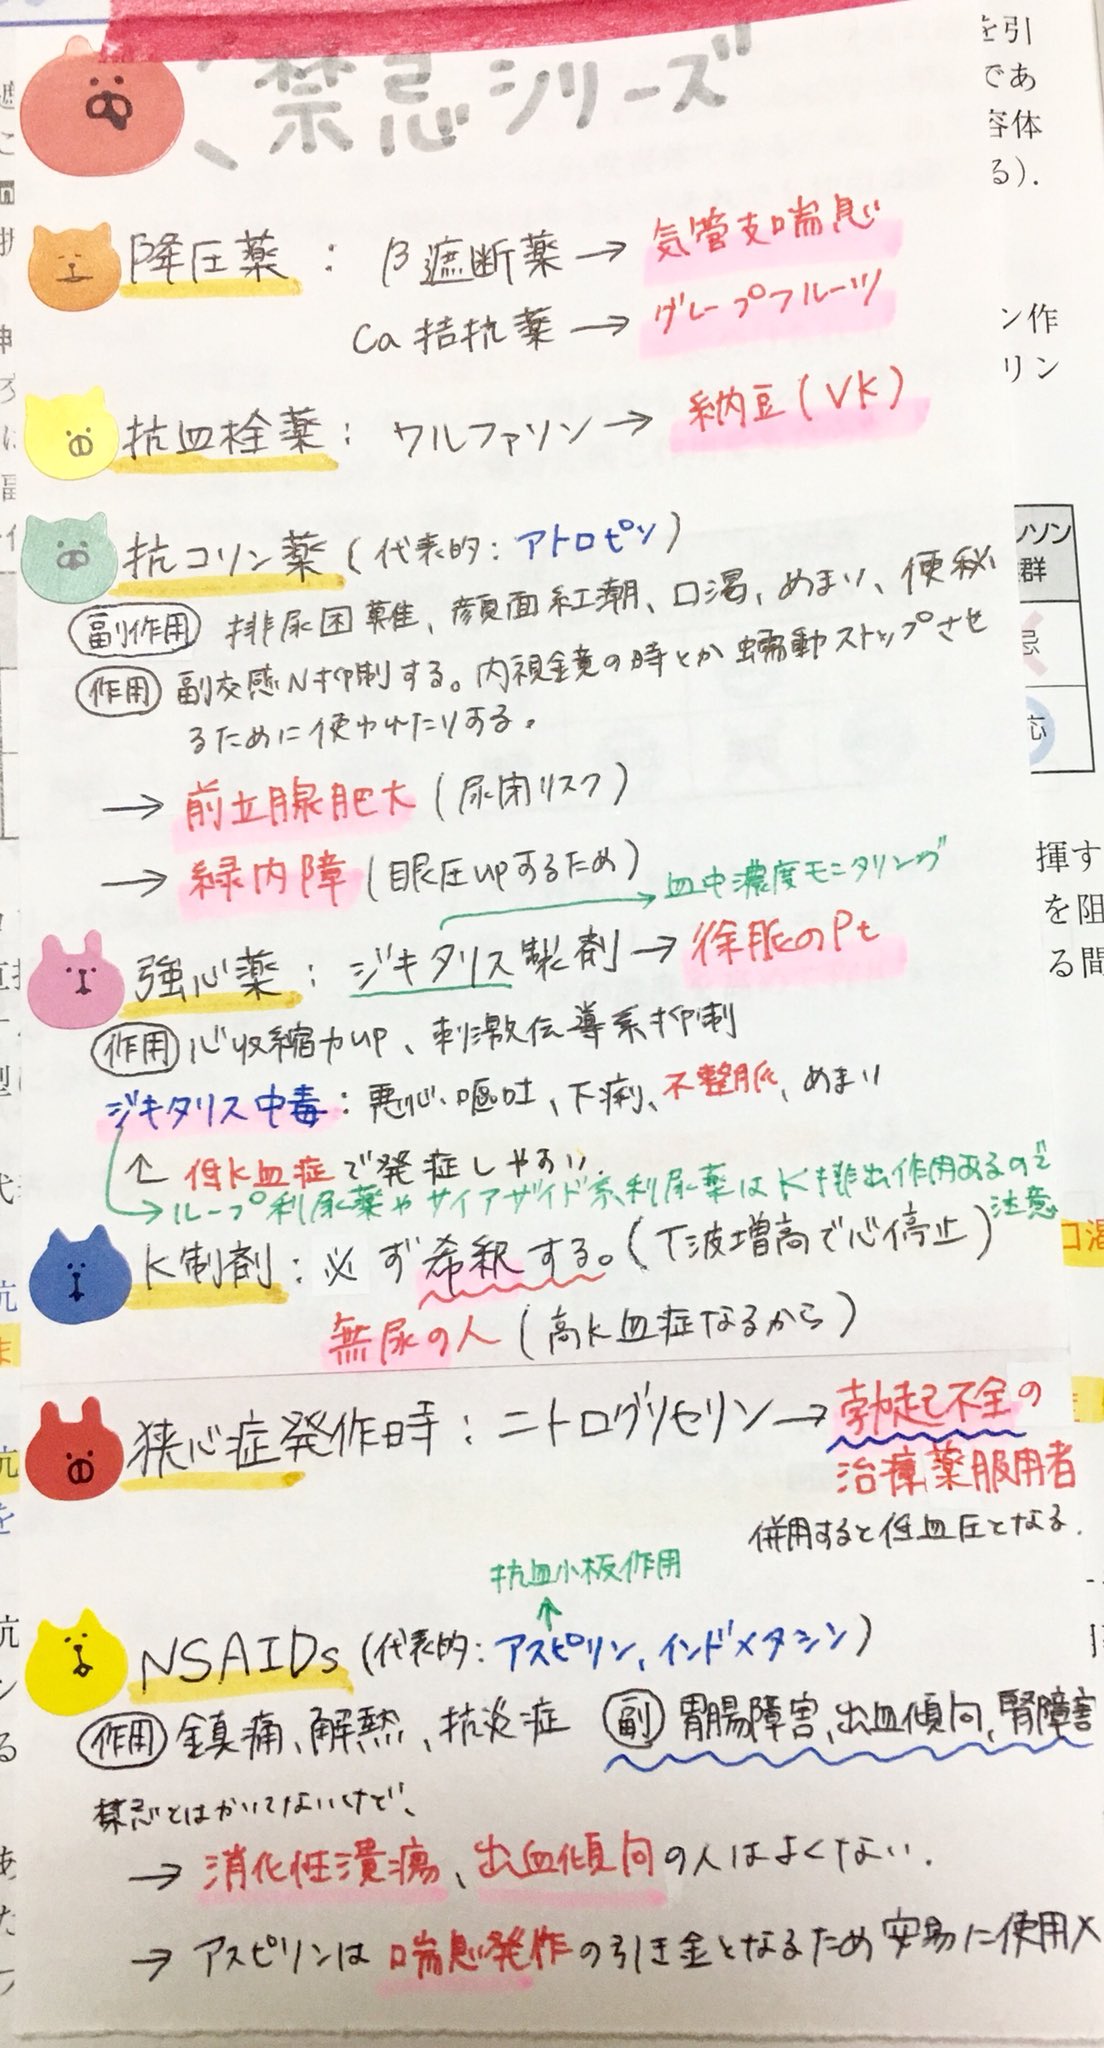 禁忌シリーズ
降圧薬 : β遮断薬 → 気管支喘息
Ca拮抗薬 → グレープフルーツ
抗血栓薬 : ワルファリン → 納豆(VK)
抗コリン薬 (代表的 : アトロピン)
副作用 排尿困難、顔面紅潮、口渇、めまい、便秘
作用 副交感N抑制する。内視鏡の時とか蠕動ストップさせ
るために使われたりする。
→ 前立腺肥大 (尿閉リスク)
→ 緑内障 (眼圧upするため)
→ 血中濃度モニタリング
強心薬 : ジキタリス製剤 → 徐脈のPt
作用 心収縮力up、刺激伝導系抑制
ジキタリス中毒 : 悪心・嘔吐、下痢、不整脈、めまい
↑ 低K血症で発症しやすい
→ ループ利尿薬やサイアザイド系利尿薬はK排出作用あるので
注意
K制剤 : 必ず希釈する。(T波増高で心停止)
無尿の人 (高K血症なるから)
狭心症発作時 : ニトログリセリン → 勃起不全の
治療薬服用者
併用すると低血圧となる.
抗血小板作用
↑
NSAIDs (代表的 : アスピリン、インドメタシン)
作用 鎮痛、解熱、抗炎症 副 胃腸障害、出血傾向、腎障害
禁忌とはかいてないけど、
→ 消化性潰瘍、出血傾向の人はよくない.
→ アスピリンは喘息発作の引き金となるため安易に使用×
を引
であ
容体
る).
ン作
リン
ンソン
群
忌
応
揮す
を阻
る間
口渇